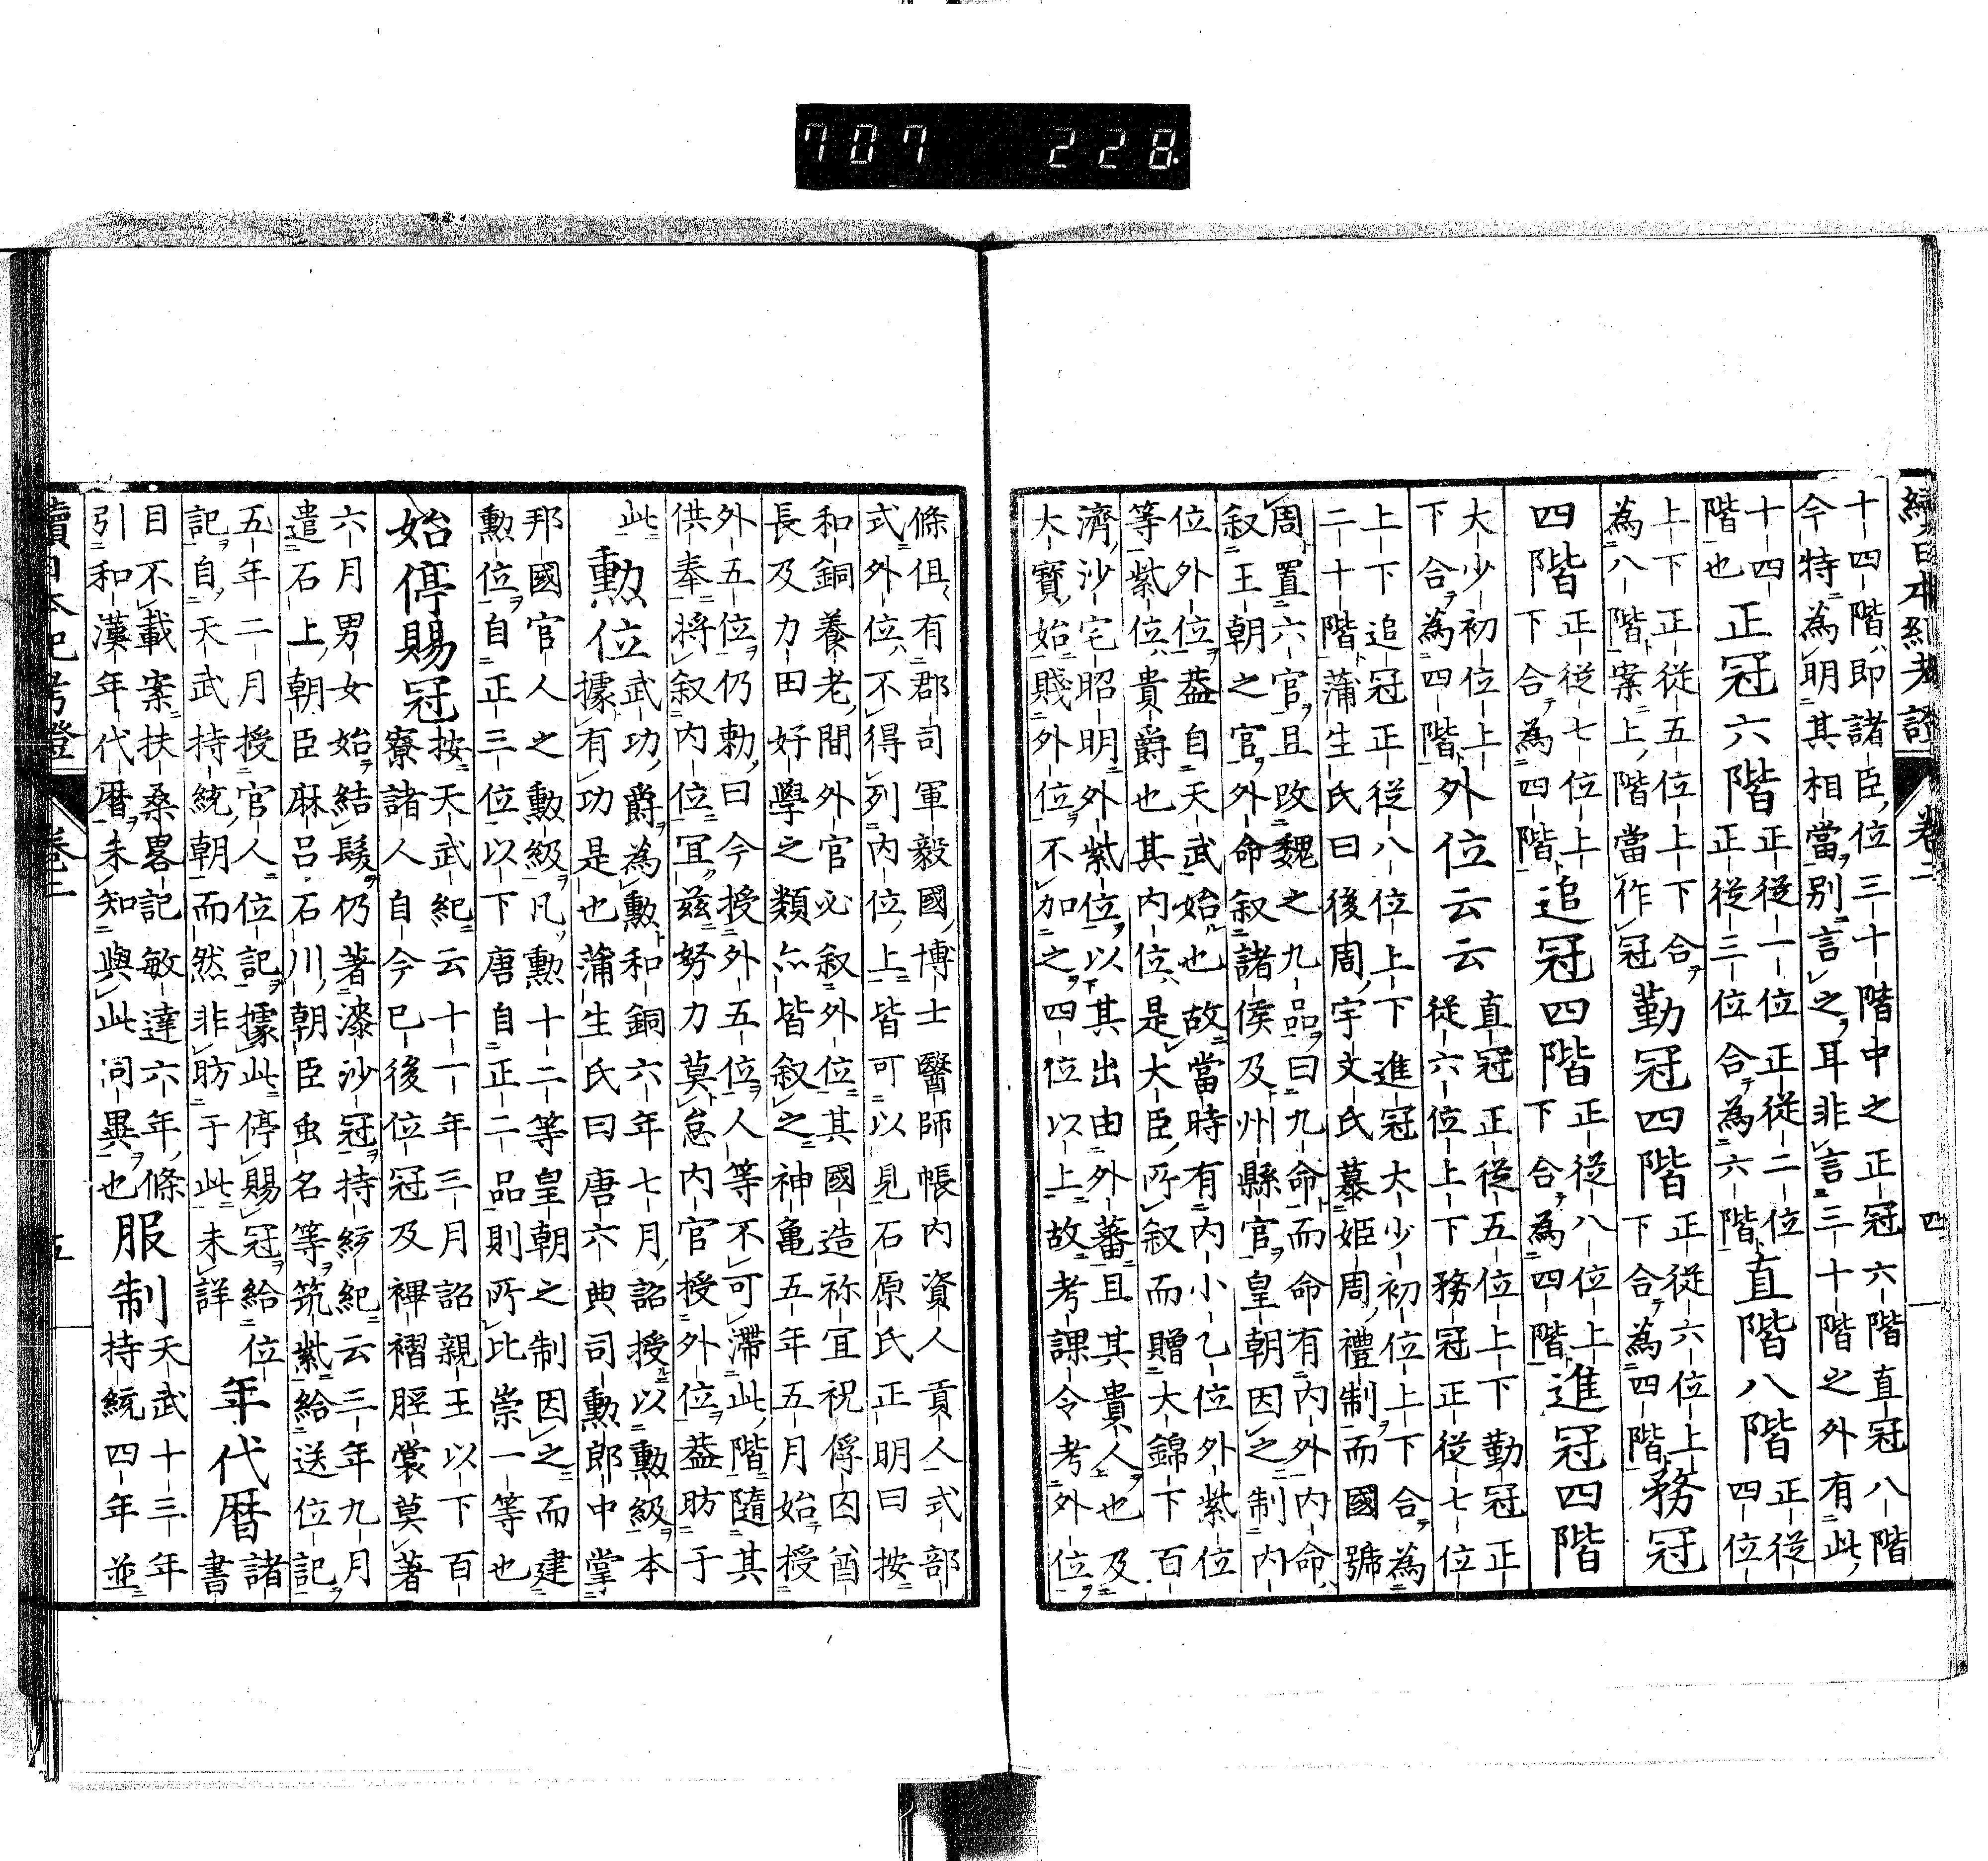 續日本紀考證 卷二 四
十四階即諸臣位三十階中之正冠六階直冠八階
今特為明其相當別言之耳非言三十階之外有此
十四階也 正冠六階 正從一位正從二位正從三位合為六階 直階八階 正從四位
上下正從五位上下合為八階案上階當作冠 勤冠四階 正從六位上下合為四階 務冠
四階 正從七位上下合為四階 追冠四階 正從八位上下合為四階 進冠四階
大少初位上下合為四階 外位云云 直冠正從五位上下勤冠正從六位上下務冠正從七位
上下追冠正從八位上下進冠大少初位上下合為
二十階蒲生氏曰後周宇文氏慕姬周禮制而國號
周置六官且改魏之九品曰九命而命有内外内命
叙王朝之官外命叙諸侯及州縣官皇朝因之制内
位外位葢自天武始也故當時有内小乙位外紫位
等紫位貴爵也其内位是大臣所叙而贈大錦下百
濟沙宅昭明外紫位以其出由外蕃且其貴人也及
大寶始賤外位不加之四位以上故考課令考外位
條但有郡司軍毅國博士醫師帳内資人貢人式部
式外位不得列内位上皆可以見石原氏正明曰按
和銅養老間外官必叙外位其國造祢宜祝俘囚酋
長及力田好學之類亦皆叙之神亀五年五月始授
外五位仍勅曰今授外五位人等不可滯此階隨其
供奉將叙内位宜茲努力莫怠内官授外位葢昉于
此 勲位 武功爵為勲和銅六年七月詔授以勲級本據有功是也蒲生氏曰唐六典司勲郎中掌
邦國官人之勲級凡勲十二等皇朝之制因之而建
勲位自正三位以下唐自正二品則所比崇一等也
始停賜冠 按天武紀云十一年三月詔親王以下百寮諸人自今已後位冠及褌褶脛裳莫著
六月男女始結髮仍著漆沙冠持統紀云三年九月
遣石上朝臣麻呂石川朝臣虫名等筑紫給送位記
五年二月授官人位記據此停賜冠給位記自天武持統朝而然非昉于此未詳 年代暦 諸書
目不載案扶桑畧記敏達六年條引和漢年代暦未知與此同異也 服制 天武十三年持統四年並
續日本紀考證 卷二 五